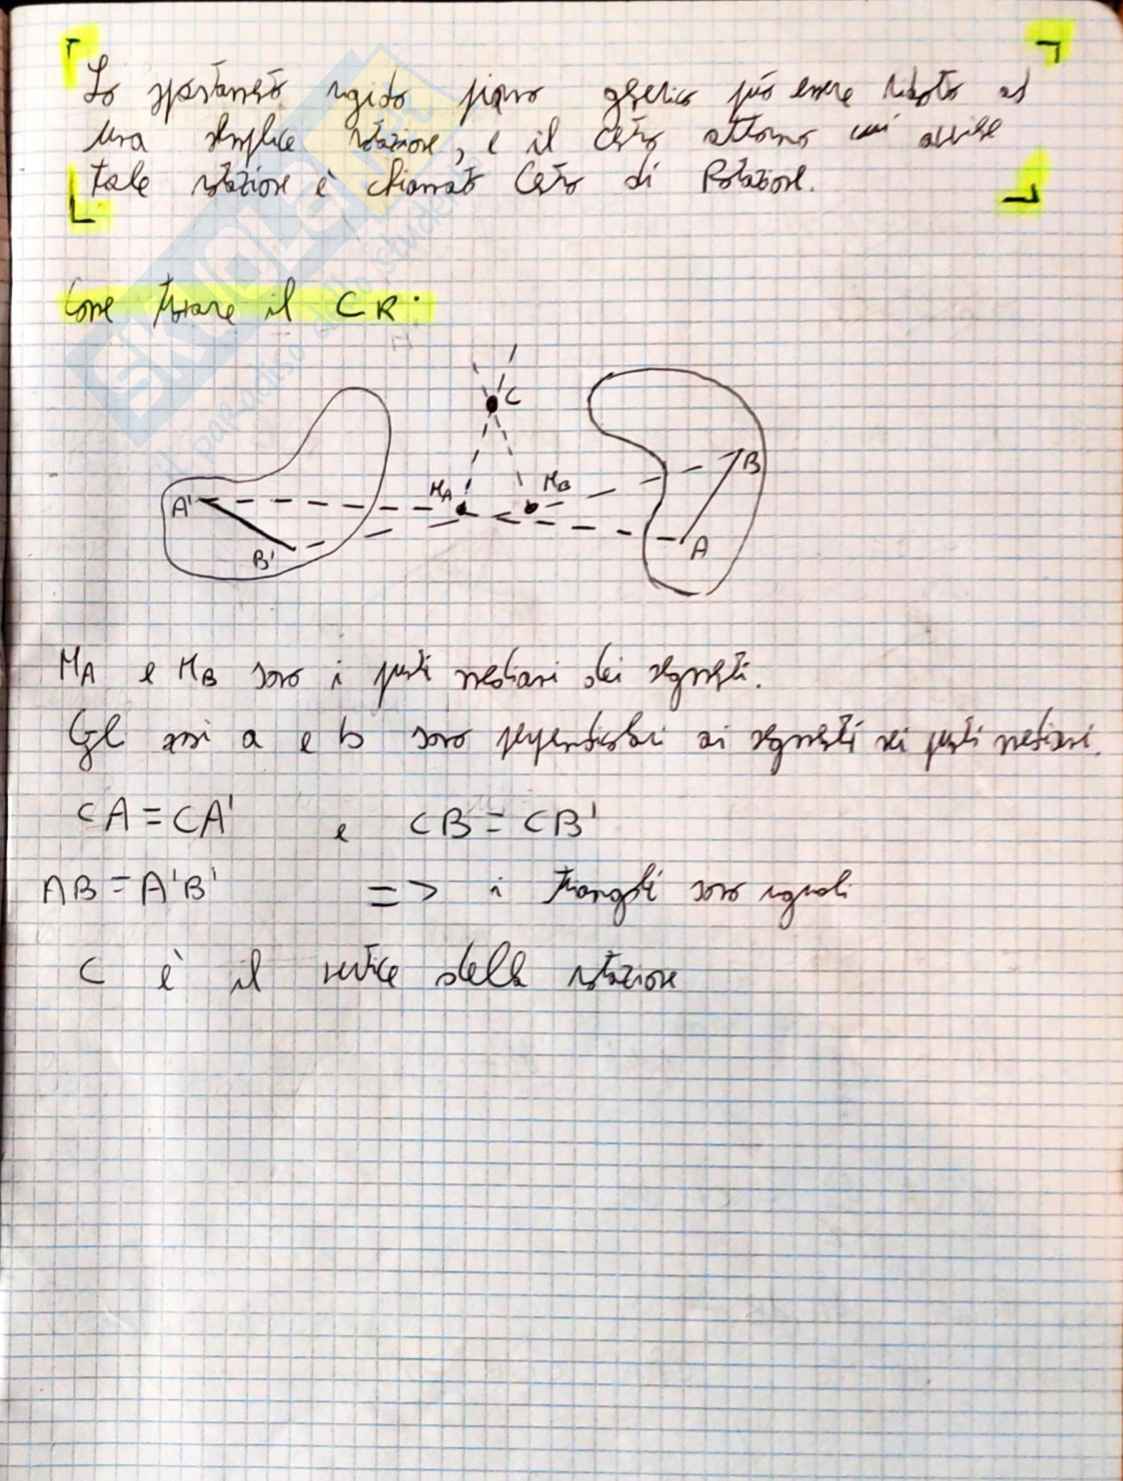 Lo spostamento rigido piano generico può essere ridotto ad
una semplice rotazione, e il centro attorno cui avviene
tale rotazione è chiamato Centro di Rotazione.
Come trovare il CR:
C
A'
B'
MA
MB
B
A
MA e MB sono i punti mediani dei segmenti.
Gli assi a e b sono perpendicolari ai segmenti nei punti mediani.
CA = CA' e CB = CB'
AB = A'B' => i triangoli sono uguali
C è il vertice della rotazione
SKUOLA
il paradiso dello studente